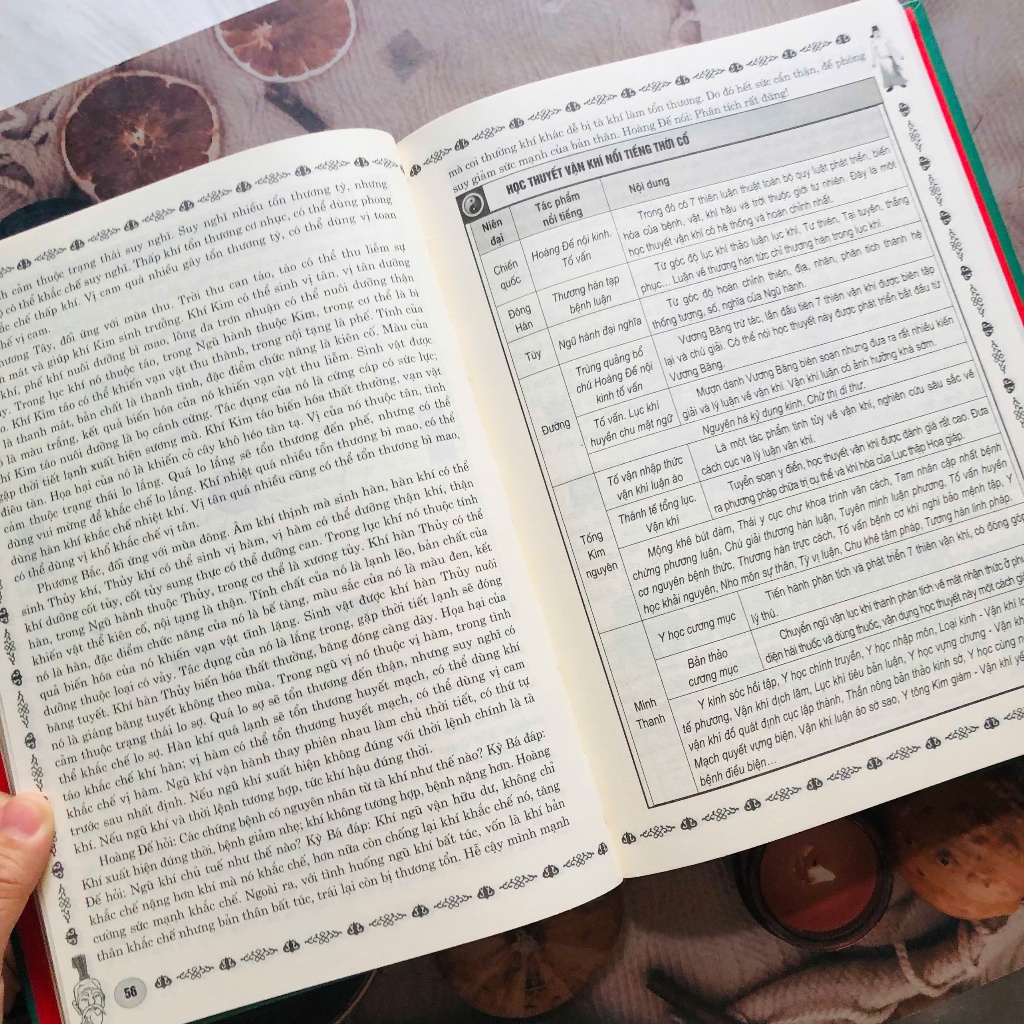 cảm thuộc trạng thái suy nghĩ. Suy nghĩ nhiều tổn thương tỳ, nhưng
có thể khắc chế suy nghĩ. Thấp khí tổn thương cơ nhục, có thể dùng phong
khắc chế thấp khí. Vị cam quá nhiều gây tổn thương tỳ, có thể dùng vị toan
chế vị cam.
Phương Tây, đối ứng với mùa thu. Trời thu can táo, táo có thể thu liễm sự
mát và giúp khí Kim sinh trưởng. Khí Kim có thể sinh vị tân, vị tân dưỡng
khí, phế khí nuôi dưỡng bì mao, lông da trơn nhuận có thể nuôi dưỡng thận
Trong lục khí nó thuộc táo, trong Ngũ hành thuộc Kim, trong cơ thể là bì
Khí Kim táo có thể khiến vạn vật thu thành, trong nội tạng là phế. Tính của
là thanh mát, bản chất là thanh tĩnh, đặc điểm chức năng là kiên cố. Màu của
là màu trắng, kết quả biến hóa của nó khiến vạn vật thu liễm. Sinh vật được
khí Kim táo nuôi dưỡng là họ cánh cứng. Tác dụng của nó là cứng cáp có sức lực;
gặp thời tiết lạnh xuất hiện sương mù. Khí Kim táo biến hóa thất thường, vạn vật
điêu tàn. Họa hại của nó là khiến cỏ cây khô héo tàn tạ. Vị của nó thuộc tân, tình
cảm thuộc trạng thái lo lắng. Quá lo lắng sẽ tổn thương đến phế, nhưng có thể
dùng vui mừng để khắc chế lo lắng. Khí nhiệt quá nhiều tổn thương bì mao, có thể
dùng hàn khí khắc chế nhiệt khí. Vị tân quá nhiều cũng có thể tổn thương bì mao,
có thể dùng vị khổ khắc chế vị tân.
Phương Bắc, đối ứng với mùa đông. Âm khí thịnh mà sinh hàn, hàn khí có thể
sinh Thủy khí, Thủy khí có thể sinh vị hàm, vị hàm có thể dưỡng thận khí, thận
khí dưỡng cốt tủy, cốt tủy sung thực có thể dưỡng can. Trong lục khí nó thuộc tính
hàn, trong Ngũ hành thuộc Thủy, trong cơ thể là xương tủy. Khí hàn Thủy có thể
khiến vật thể kiên cố, nội tạng là thận. Tính chất của nó là lạnh lẽo, bản chất của
nó là hàn, đặc điểm chức năng của nó là bế tàng, màu sắc của nó là màu đen, kết
quả biến hóa của nó khiến vạn vật tĩnh lặng. Sinh vật được khí hàn Thủy nuôi
dưỡng thuộc loại có vảy. Tác dụng của nó là lắng trong, gặp thời tiết lạnh sẽ đóng
băng tuyết. Khí hàn Thủy biến hóa thất thường, băng đóng càng dày. Họa hại của
nó là giáng băng tuyết không theo mùa. Trong ngũ vị nó thuộc vị hàm, trong tình
cảm thuộc trạng thái lo sợ. Quá lo sợ sẽ tổn thương đến thận, nhưng suy nghĩ có
thể khắc chế lo sợ. Hàn khí quá lạnh sẽ tổn thương huyết mạch, có thể dùng khí
táo khắc chế khí hàn; vị hàm có thể tổn thương huyết mạch, có thể dùng vị cam
khắc chế vị hàm. Ngũ khí vận hành thay phiên nhau làm chủ thời tiết, có thứ tự
trước sau nhất định. Nếu ngũ khí xuất hiện không đúng với thời lệnh chính là tà
khí. Nếu ngũ khí và thời lệnh tương hợp, tức khí hậu đúng thời.
Hoàng Đế hỏi: Các chứng bệnh có nguyên nhân từ tà khí như thế nào? Kỳ Bá đáp:
Khí xuất hiện đúng thời, bệnh giảm nhẹ; khí không tương hợp, bệnh nặng hơn. Hoàng
Đế hỏi: Ngũ khí chủ tuế như thế nào? Kỳ Bá đáp: Khí ngũ vận hữu dư, không chỉ
khắc chế nặng hơn khí mà nó khắc chế, hơn nữa còn chống lại khí khắc chế nó, tăng
cường sức mạnh khắc chế. Ngoài ra, với tình huống ngũ khí bất túc, vốn là khí bản
thân khắc chế nhưng bản thân bất túc, trái lại còn bị thương tổn. Hễ cậy mình mạnh
56
mà coi thường khí khác dễ bị tà khí làm tổn thương. Do đó hết sức cẩn thận, đề phòng
suy giảm sức mạnh của bản thân. Hoàng Đế nói: Phân tích rất đúng!
HỌC THUYẾT VẬN KHÍ NỔI TIẾNG THỜI CỔ
Niên đại
Tác phẩm nổi tiếng
Nội dung
Chiến quốc
Hoàng Đế nội kinh. Tố vấn
Trong đó có 7 thiên luận thuật toàn bộ quy luật phát triển, biến
hóa của bệnh, vật, khí hậu và trời thuộc giới tự nhiên. Đây là một
học thuyết vận khí có hệ thống và hoàn chỉnh nhất.
Đông Hán
Thương hàn tạp bệnh luận
Từ góc độ lục khí thảo luận lục khí, Tư thiên, Tại tuyền, thắng
phục... Luận về thương hàn tức chỉ thương hàn trong lục khí.
Tùy
Ngũ hành đại nghĩa
Từ góc độ hoàn chỉnh thiên, địa, nhân, phân tích thanh hệ
thống tượng, số, nghĩa của Ngũ hành.
Đường
Trùng quảng bổ
chú Hoàng Đế nội
kinh tố vấn
Vương Băng trứ tác, lần đầu tiên 7 thiên vận khí được biên tập
lại và chú giải. Có thể nói học thuyết này được phát triển bắt đầu từ
Vương Băng.
Tố vấn. Lục khí
huyền chu mật ngữ
Mượn danh Vương Băng biên soạn nhưng đưa ra rất nhiều kiến
giải và lý luận về vận khí. Vận khí luận có ảnh hưởng khá sớm.
Nguyên hà kỷ dụng kinh, Chử thị di thư.
Tống
Kim
nguyên
Tố vấn nhập thức
vận khí luận áo
Là một tác phẩm tinh túy về vận khí, nghiên cứu sâu sắc về
cách cục và lý luận vận khí.
Thánh tế tổng lục.
Vận khí
Tuyển soạn y điển, học thuyết vận khí được đánh giá rất cao. Đưa
ra phương pháp chữa trị cụ thể và khí hóa của Lục thập Hoa giáp.
Mộng khê bút đàm, Thái y cục chư khoa trình văn cách, Tam nhân cập nhất bệnh
chứng phương luận, Chú giải thương hàn luận, Tuyên minh luận phương, Tố vấn huyền
cơ nguyên bệnh thức, Thương hàn trực cách, Tố vấn bệnh cơ khí nghi bảo mệnh tập, Y
học khải nguyên, Nho môn sự thân, Tỳ vị luận, Chu khê tâm pháp, Tương hàn linh pháp.
Minh
Thanh
Y học cương mục
Tiến hành phân tích và phát triển 7 thiên vận khí, có đóng góp
lý thú.
Bản thảo
cương mục
Chuyển ngũ vận lục khí thành phân tích về mặt nhận thức ở
diện hái thuốc và dùng thuốc, vận dụng học thuyết này một cách
Y kinh sóc hồi tập, Y học chính truyền, Y học nhập môn, Loại kinh - Vận khí
tế phương, Vận khí dịch lãm, Lục khí tiêu bản luận, Y học vựng chứng - Vận
vận khí đồ quát định cục lập thành, Thần nông bản thảo kinh sớ, Y học cùng
Mạch quyết vựng biện, Vận khí luận áo sớ sao, Y tông Kim giám - Vận khí
bệnh điều biện...